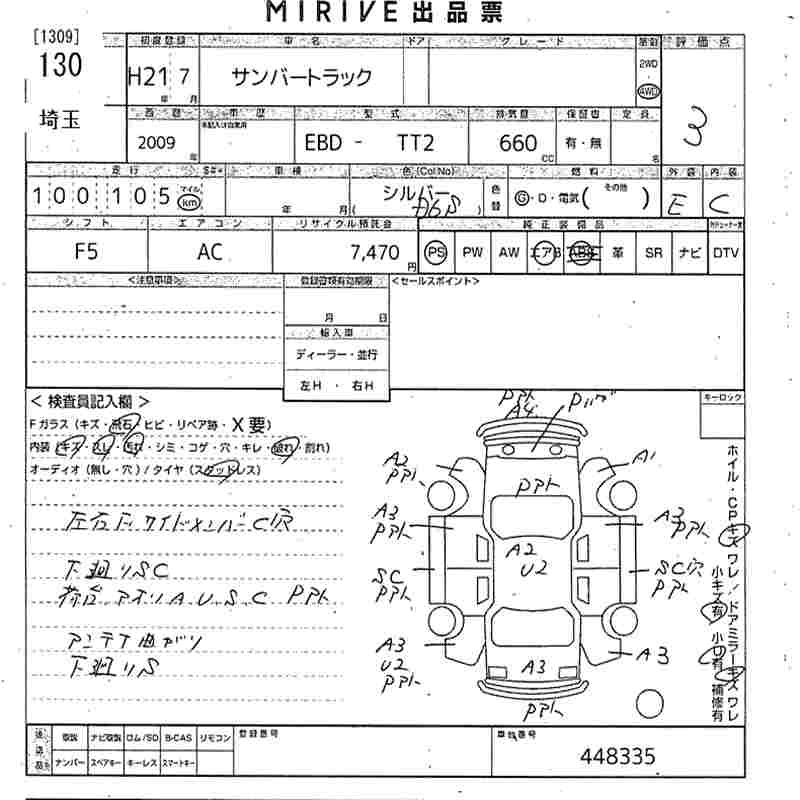 MIRIVE 出品票
[1309]
130
埼玉
初度登録 車名 ドア グレード 駆動 評価点
H21 7 年 月
サンバートラック
2WD
AWD
3
型式 排気量 保証書 定員
2009 年
EBD - TT2
660 cc
有・無
名
走行 車検 色(ColNo) 燃料 外装 内装
100 105 マイル km
年 月
シルバー
D6S
色替
G・D・電気( その他 )
E C
シフト エアコン リサイクル預託金 純正装備品
F5 AC 7,470 円
PS PW AW エアB ABS 革 SR ナビ DTV
<注意事項> 登録書類有効期限 <セールスポイント>
月 日
輸入車
ディーラー・並行
左H ・ 右H
<検査員記入欄>
キーロック
Fガラス (キズ・飛石・ヒビ・リペア跡・X要)
内装 (キズ・スレ・汚れ・シミ・コゲ・穴・キレ・破れ・割れ)
オーディオ (無し・穴) / タイヤ (スタッドレス)
左右F サイドメンバー C穴
下廻り SC
荷台 アオリ A U S C PPト
アンテナ曲がり
下廻り S
PPト
A4
A2
PPト
A1
PPト
A3
PPト
A3
PPト
A2
U2
SC
PPト
SC穴
PPト
A3
U2
PPト
A3
A3
PPト
ホイル・CPキズ ワレ / ドアミラーキズ ワレ
小キズ有 小凹有 補修有
後送品 取説 ナビ取説 ロム/SD B-CAS リモコン 登録番号 車台番号
ナンバー スペアキー キーレス スマートキー
448335